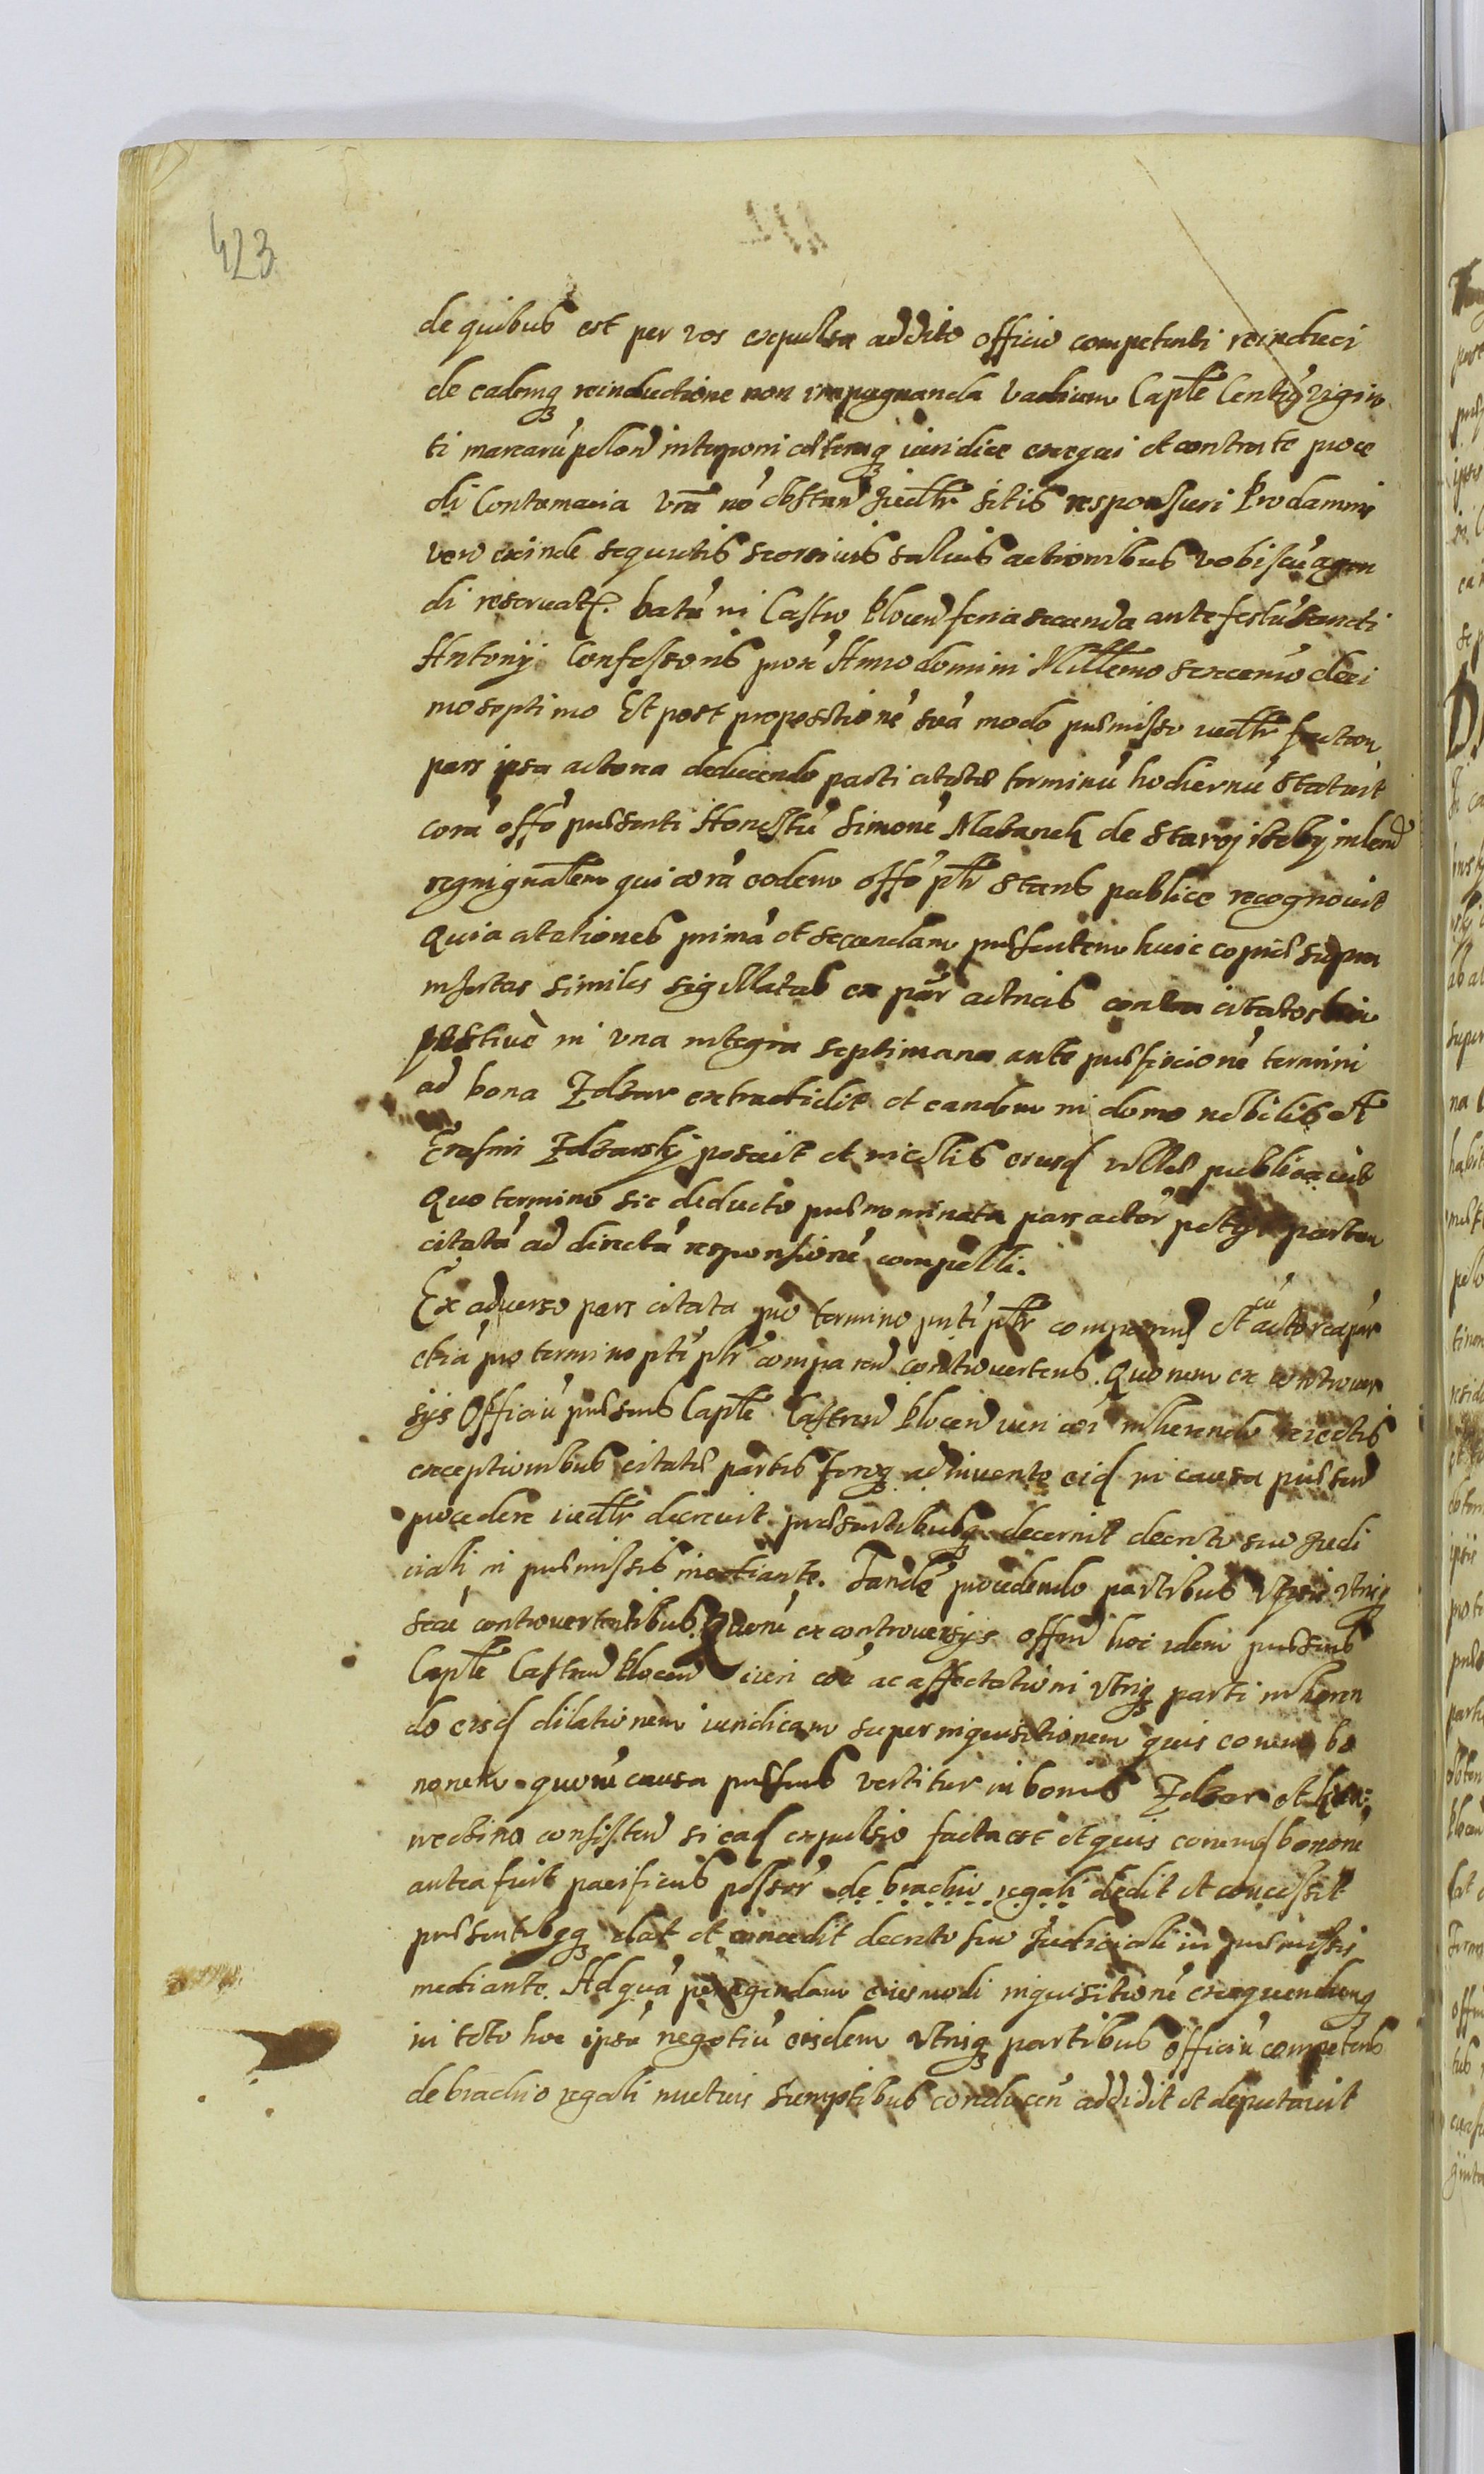 423
de quibus est per vos expulsa addito officio competenti reinduci
de eademq reinductione non impugnanda Vadium Caple Centu vigin
ti marcaru polon interponi iuridice exequi et contra te proce
di Contumacia vra no obstan Judtr sitis responsuri Pro damnis
vero exinde sequutis seorsivis salvis actionibus vobiscu agen
di reservat. Datu in Castro Plocen feria secunda ante festu Sancti
Antonij Confessoris prox Anno domini Millemo sexcenmo deci
mo septimo Et post propositione sua modo pmisso iudtr factam
pars ipsa actorea deducendo parti citatae terminu hodiernu statuit
cora offo pnsenti Honestu Simone de
regni gnalem qui cora eodem offo pltr stans publice recognovit
Quia citationes prima et secundam pnsentem huic copiae supra
insertas similes sigillatas ex par actricis contra citatos
in una integra septimana ante pnsficcione termini
ad bona extunc tidit et eandem in domo nobilis
Erasmi posuit et incolis eiusd villae publicavit
Quo termino sic deducto pnominata pars actor petyt partem
citata ad directa responsione compelli.
Ex adverso pars citata pro termino pnti pltr comparens et cu actorea par
etia pro termino pti pltr comparen controvertens. Quorum ex controver
sijs Officiu pnsens Caple Castren Plocen iuri coi inherendo reiectis
exceptionibus citatae partis foroq adinvento eid in causa pnsen
procedere iudtr decrevit pnsentibusq decernit decreto suo Judi
ciali in pmissis mediante. Tande procedendo partibus ipsis utrinq
secu controvertentibus. Quoru ex controversijs offm hoc idem pnsens
Caple Castren Plocen iuri coi ac affectationi utriq parti inheren
do eisd dilationem iuridicam super inquisitionem quis eorum bo
norum quoru causa pnsens vertitur in bonis et
consisten si ead expulsio facta est et quis eorumd bonoru
antea fuit pacificus possor de brachio regali dedit et concessit
pnsentibqq dat et concedit decreto suo Judiciali in pmissis
mediante. Ad qua peragendam eiusmodi inquisitione exequendumq
in toto hoc ipsu negotiu eisdem utrisq partibus officiu competens
de brachio regali mutuis sumptibus conducen addidit et deputavit